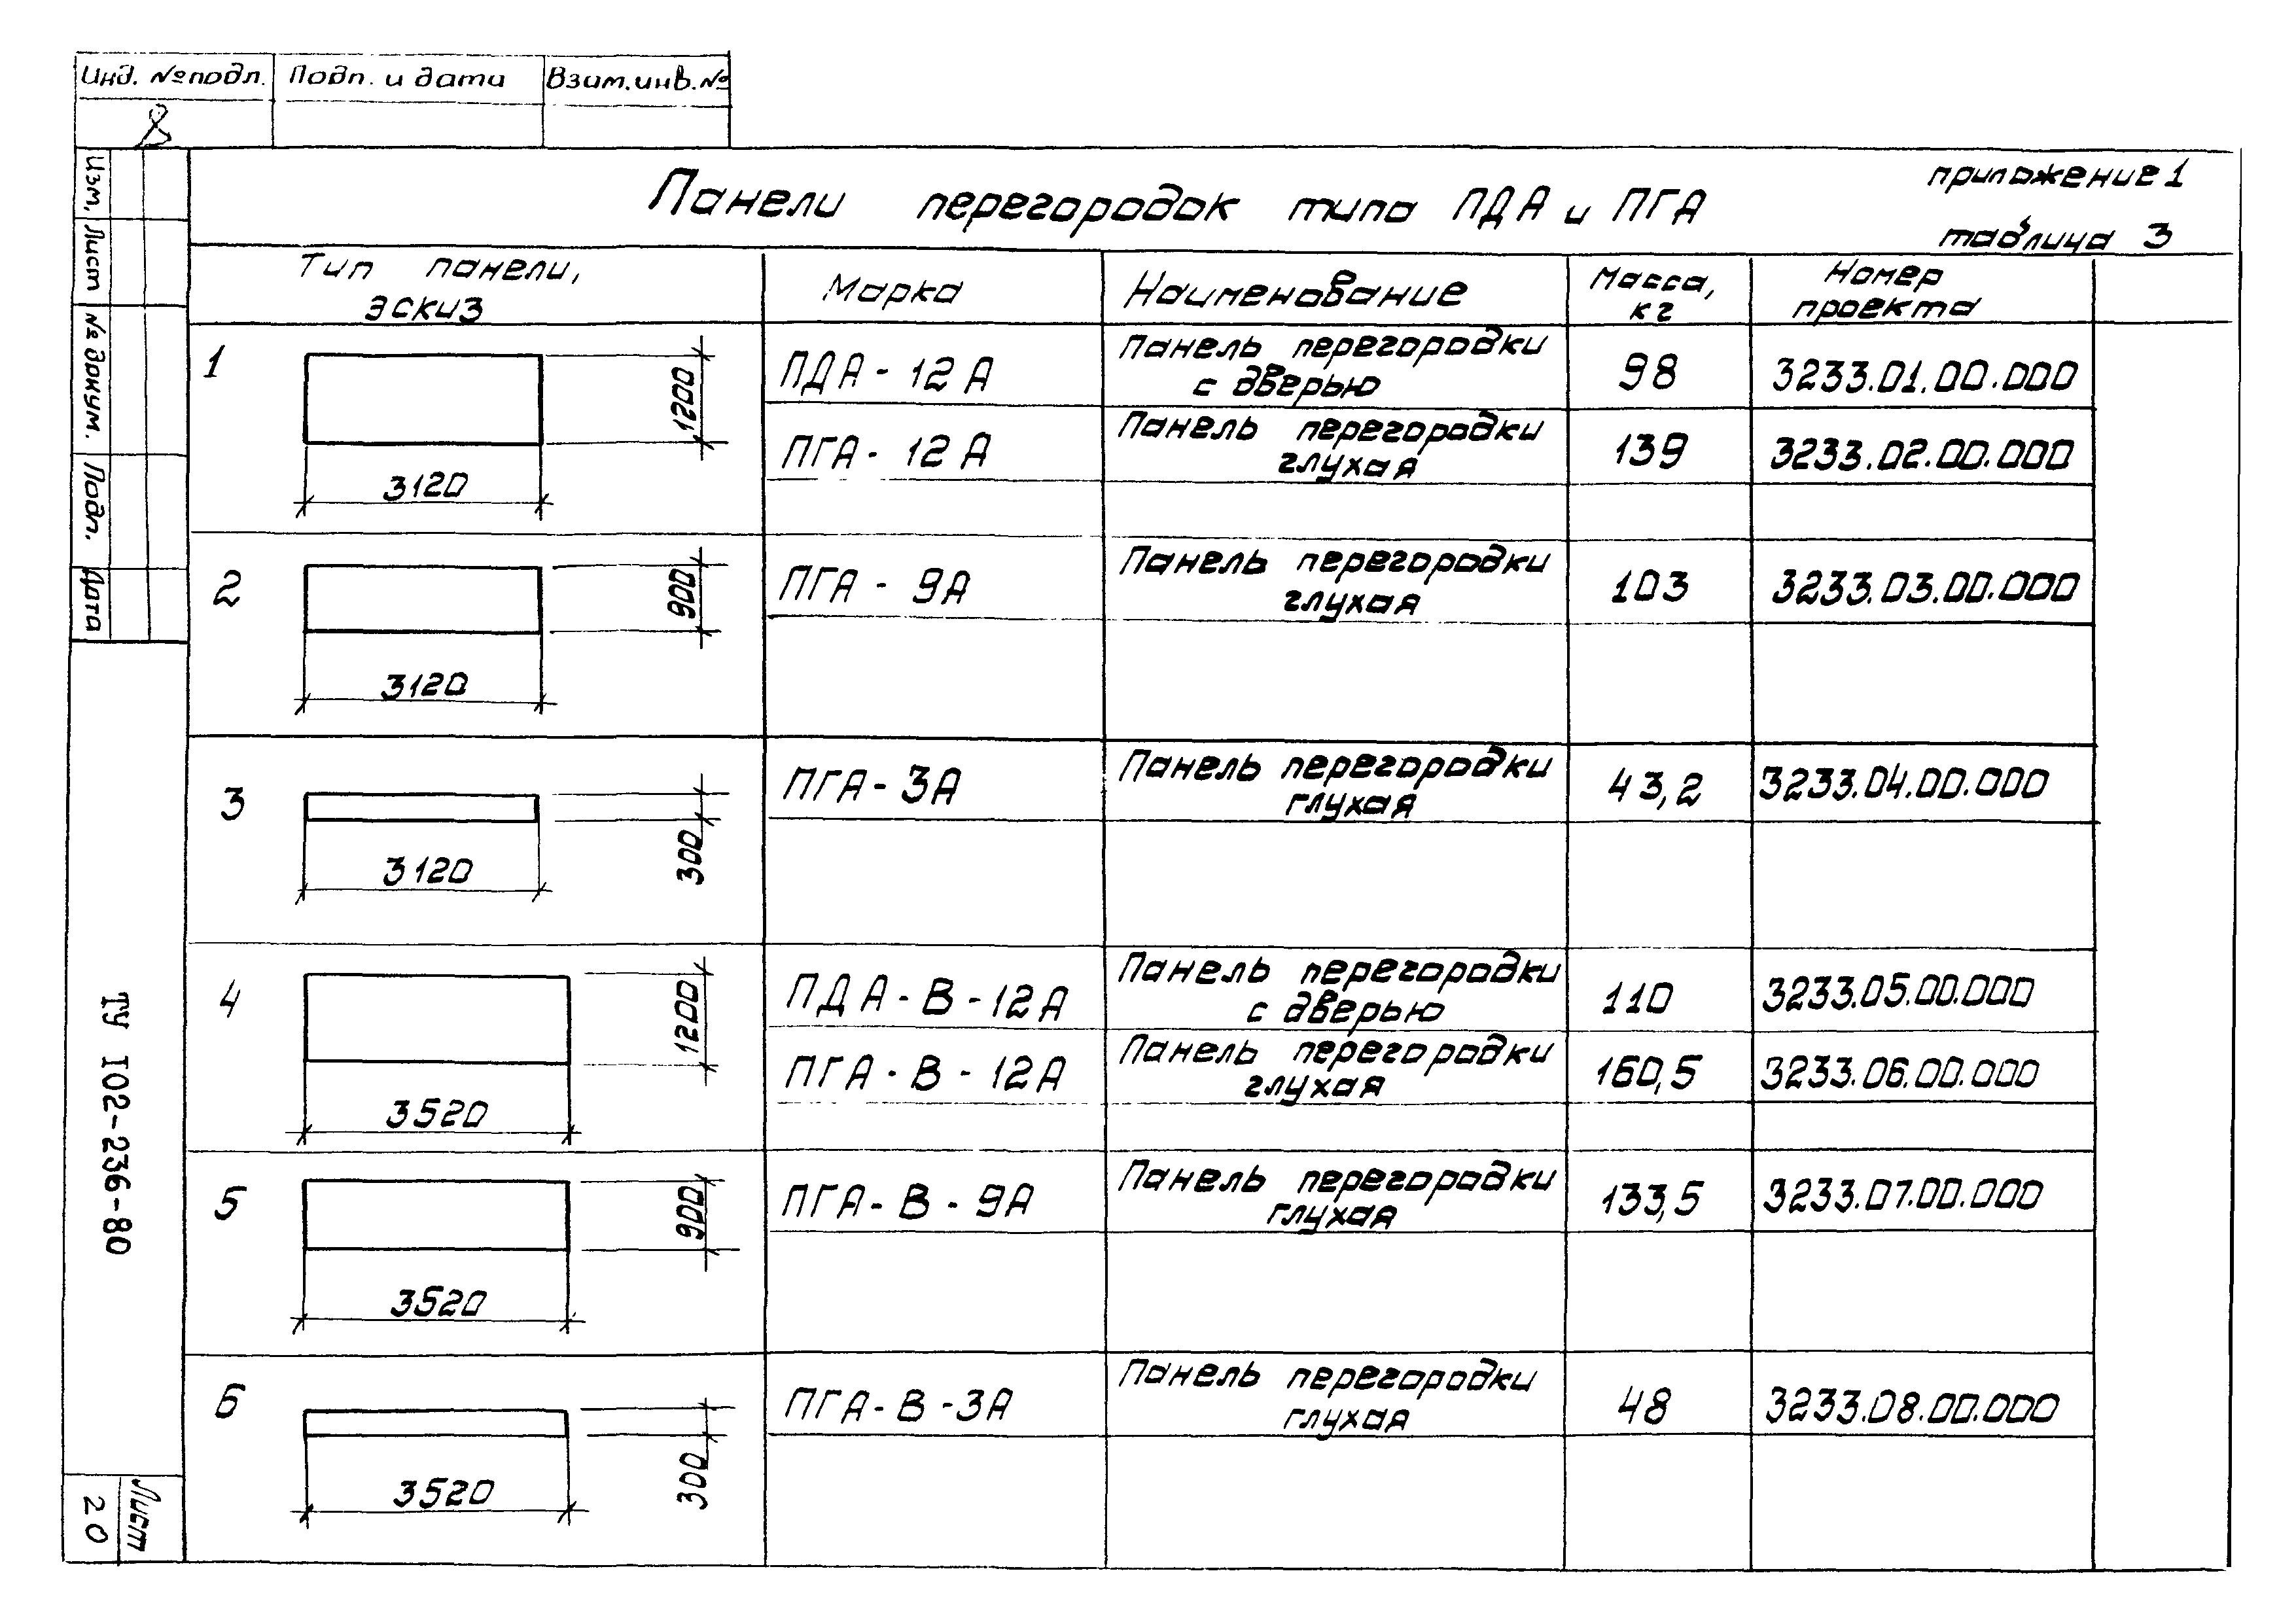 Инд. № подл. Подп. и дата Взам.инв.№
8
Изм. Лист № докум. Подп. Дата
ТУ 102-236-80
Лист
20
приложение 1
Панели перегородок типа ПДА и ПГА
таблица 3
Тип панели, эскиз
Марка
Наименование
Масса, кг
Номер проекта
1
1200
3120
ПДА-12А
Панель перегородки
с дверью
98
3233.01.00.000
ПГА-12А
Панель перегородки
глухая
139
3233.02.00.000
2
900
3120
ПГА-9А
Панель перегородки
глухая
103
3233.03.00.000
3
300
3120
ПГА-3А
Панель перегородки
глухая
43,2
3233.04.00.000
4
1200
3520
ПДА-В-12А
Панель перегородки
с дверью
110
3233.05.00.000
ПГА-В-12А
Панель перегородки
глухая
160,5
3233.06.00.000
5
900
3520
ПГА-В-9А
Панель перегородки
глухая
133,5
3233.07.00.000
6
300
3520
ПГА-В-3А
Панель перегородки
глухая
48
3233.08.00.000